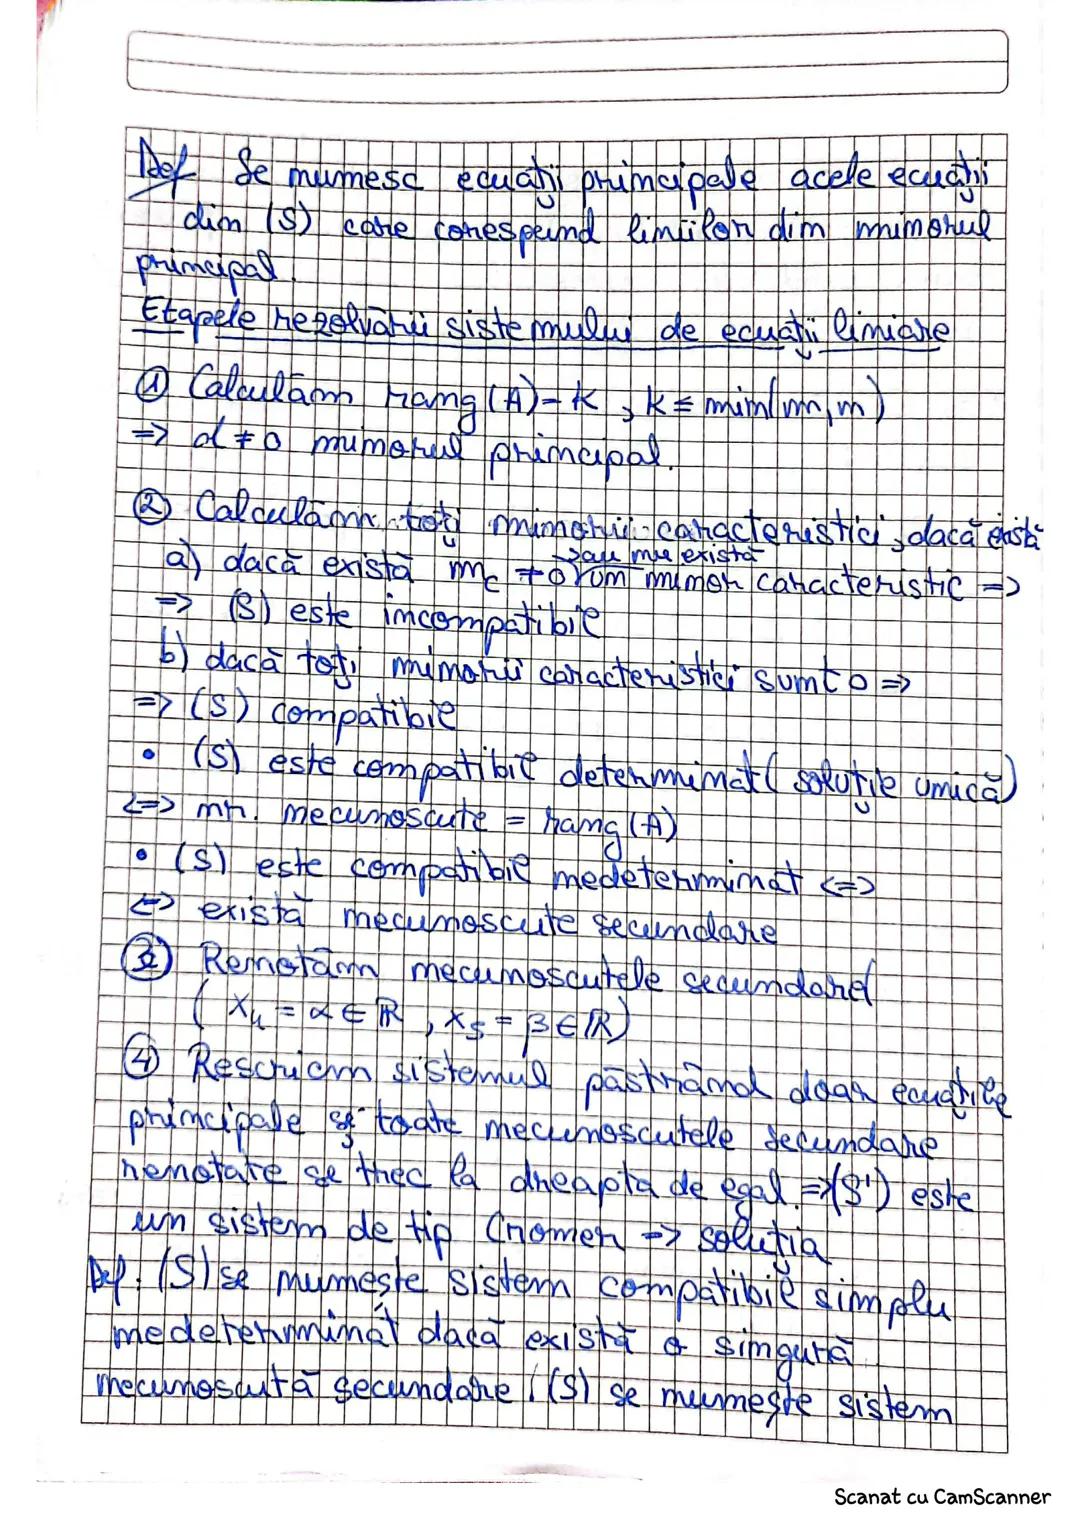 Def Se numesc ecuații principale acele ecuații
din (S) care corespund liniilor din minorul
principal.
Etapele rezolvării sistemului de ecuații liniare
① Calculăm rang (A) = k , k ≤ min(m,n)
=> d ≠ 0 minorul principal.
② Calculăm toți minorii caracteristici, dacă există
sau nu există
a) dacă există mc ≠ 0 un minor caracteristic =>
=> (S) este incompatibil
b) dacă toți minorii caracteristici sunt 0 =>
=> (S) compatibil
• (S) este compatibil determinat (soluție unică)
<=> nr. necunoscute = rang (A)
• (S) este compatibil nedeterminat <=>
<=> există necunoscute secundare
③ Renotăm necunoscutele secundare
( x₄ = α ∈ ℝ , x₅ = β ∈ ℝ)
④ Rescriem sistemul păstrând doar ecuațiile
principale și toate necunoscutele secundare
renotate se trec la dreapta de egal. => (S') este
un sistem de tip Cramer => soluția
Def. (S) se numește sistem compatibil simplu
nedeterminat dacă există o singură
necunoscută secundare ; (S) se numește sistem
Scanat cu CamScanner